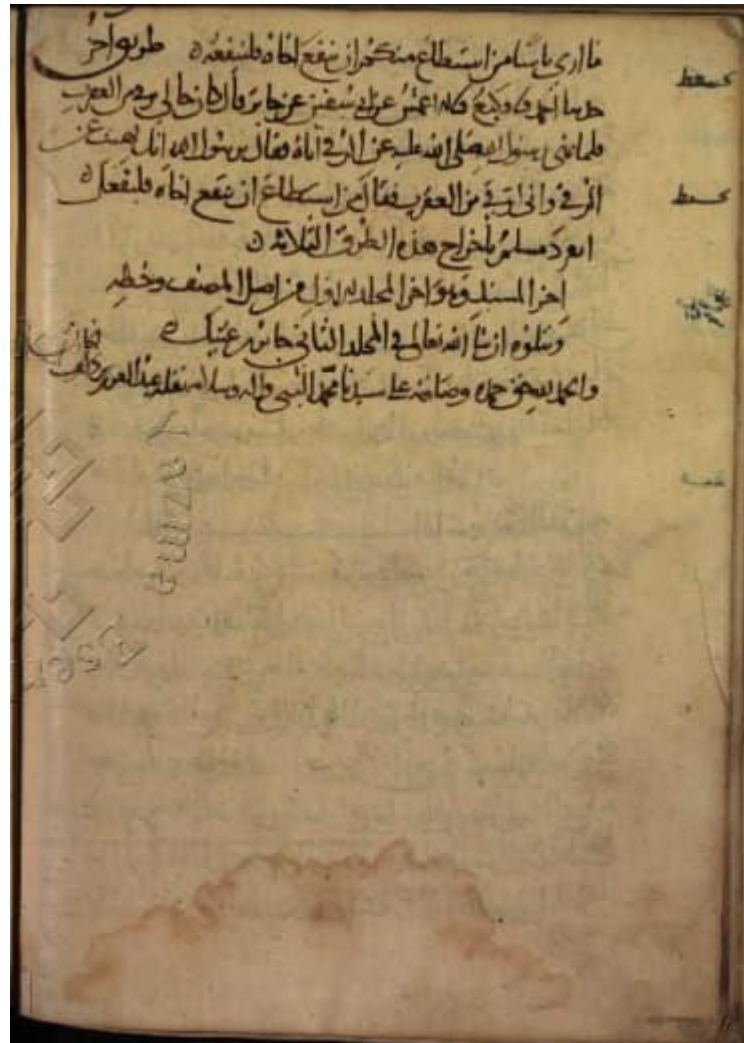 ما أرى بأسا من استطاع منكم أن ينفع أخاه فلينفعه طريق آخر
حدثنا أحمد وكيع الأعمش عن أبي سفين عن جابر قال كان خالي يرقي من العقرب
فلما نهى رسول الله صلى الله عليه عن الرقى أتاه فقال يرسول الله انك نهيت عن
الرقى واني ارقي من العقرب فقال من استطاع ان ينفع اخاه فليفعل
انفرد مسلم بإخراج هذه الطرق الثلاثة
اخر المسند وهو اخر المجلد الاول من اصل المصنف وخطه
ويتلوه ان شا الله تعالى في المجلد الثاني جابر بن عتيك
والحمد لله حق حمده وصلاته على سيدنا محمد النبي واله وسلامه نقله عبد العزيز